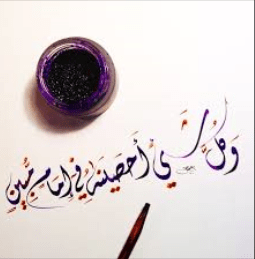 وَكُلَّ شَيْءٍ أَحْصَيْنَٰهُ فِي إِمَامٍ مُّبِينٍ